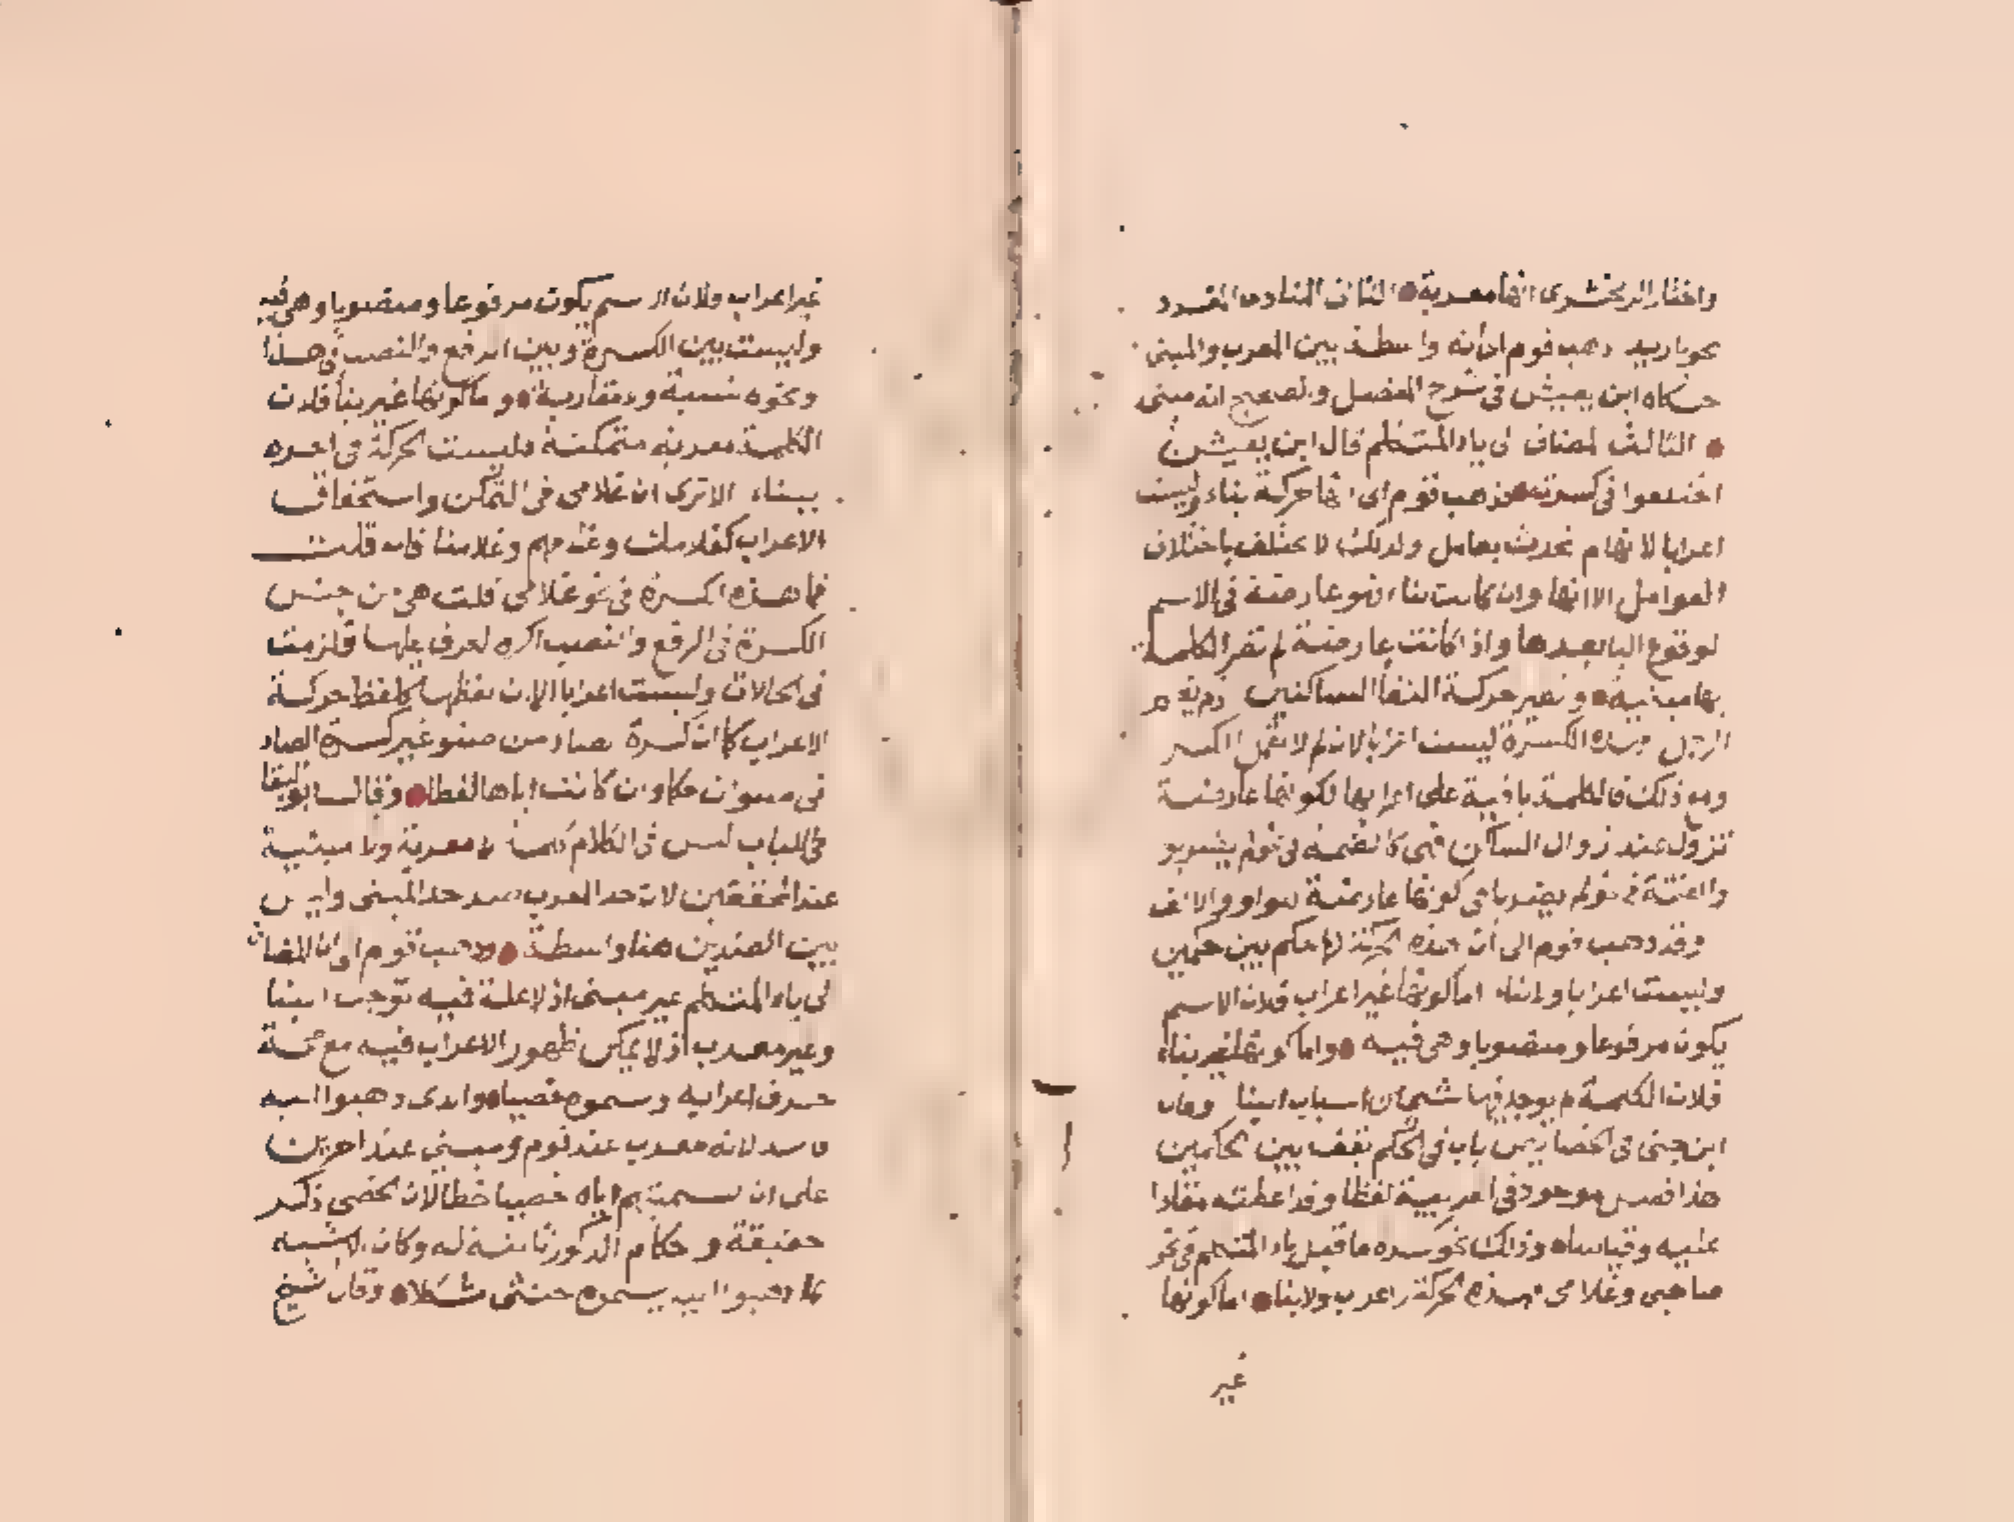 واختار الزمخشري انها معربة الثاني المنادى المفرد
نحو يا زيد ذهب قوم الى انه واسطة بين المعرب والمبني
حكاه ابن يعيش في شرح المفصل والصحيح انه مبني
الثالث المضاف الى ياء المتكلم قال ابن يعيش
اختلفوا في كسرته فذهب قوم الى انها حركة بناء وليست
اعرابا لانها لم تحدث بعامل ولذلك لا تختلف باختلاف
العوامل الا انها وان كانت بناء فهو عارضة في الاسم
لوقوع اليا بعدها واذا كانت عارضة لم تصر الكلمة
بها مبنية ونظير حركة التقا الساكنين لم يقم
الرجل وهذه الكسرة ليست اعرابا لان لم لا تعمل الكسر
ومع ذلك فالكلمة باقية على اعرابها لكونها عارضة
تزول عند زوال الساكن فهي كالضمة في نحو لم يضربو
والفتحة في نحو لم يضربا في كونها عارضة للواو والالف
وقد ذهب قوم الى أن هذه الحركة لها حكم بين حكمين
وليست اعرابا ولا بناء اما كونها غير اعراب فلان الاسم
يكون مرفوعا ومنصوبا وهي فيه واما كونها غير بناء
فلان الكلمة لم يوجد فيها شيء من اسباب البنا وقال
ابن جني في الخصايص باب في الحكم يقف بين الحكمين
هذا فصل موجود في العربية لفظا وقد اعطته مقادا
عليه وقياسا وذلك نحو كسره ما قبل ياء المتكلم في نحو
صاحبي وغلامي فهذه الحركة لا اعراب ولا بنا اما كونها
غير
غير اعراب فلان الاسم يكون مرفوعا ومنصوبا وهي فيه
وليست بين الكسرة وبين الرفع والنصب في هذا
ونحوه نسبة ولا مقاربة واما كونها غير بنا فلان
الكلمة معربة متمكنة فليست الحركة في اخره
ببناء الا ترى ان غلامي في التمكن واستحقاق
الاعراب كغلامك وغلامهم وغلامنا فان قلت
فما هذه الكسرة في نحو غلامي قلت هي من جنس
الكسرة في الرفع والنصب اكره الحرف عليها فلزمت
في الحالات وليست اعرابا الا ان لفظها كلفظ حركة
الاعراب كما ان كسرة الصاد من صنو غير كسرة الصاد
في صنوان حكما وان كانت اياها لفظا وقال ابو البقا
في اللباب ليس في الكلام كلمة لا معربة ولا مبنية
عند المحققين لان حد المعرب ضد حد المبني وليس
بين الضدين هنا واسطة وذهب قوم الى ان المضاف
الى ياء المتكلم غير مبني اذ لا علة فيه توجب البنا
وغير معرب اذ لا يمكن ظهور الاعراب فيه مع صحة
حرف اعرابه وسموه خصيا والذي ذهبوا اليه
فاسد لانه معرب عند قوم ومبني عند اخرين
على ان تسميتهم اياه خصيا خطا لان الخصي ذكر
حقيقة واحكام الذكور ثابتة له وكان الاشبه
بما ذهبوا اليه ان يسموه خنثى مشكلا وقال الشيخ